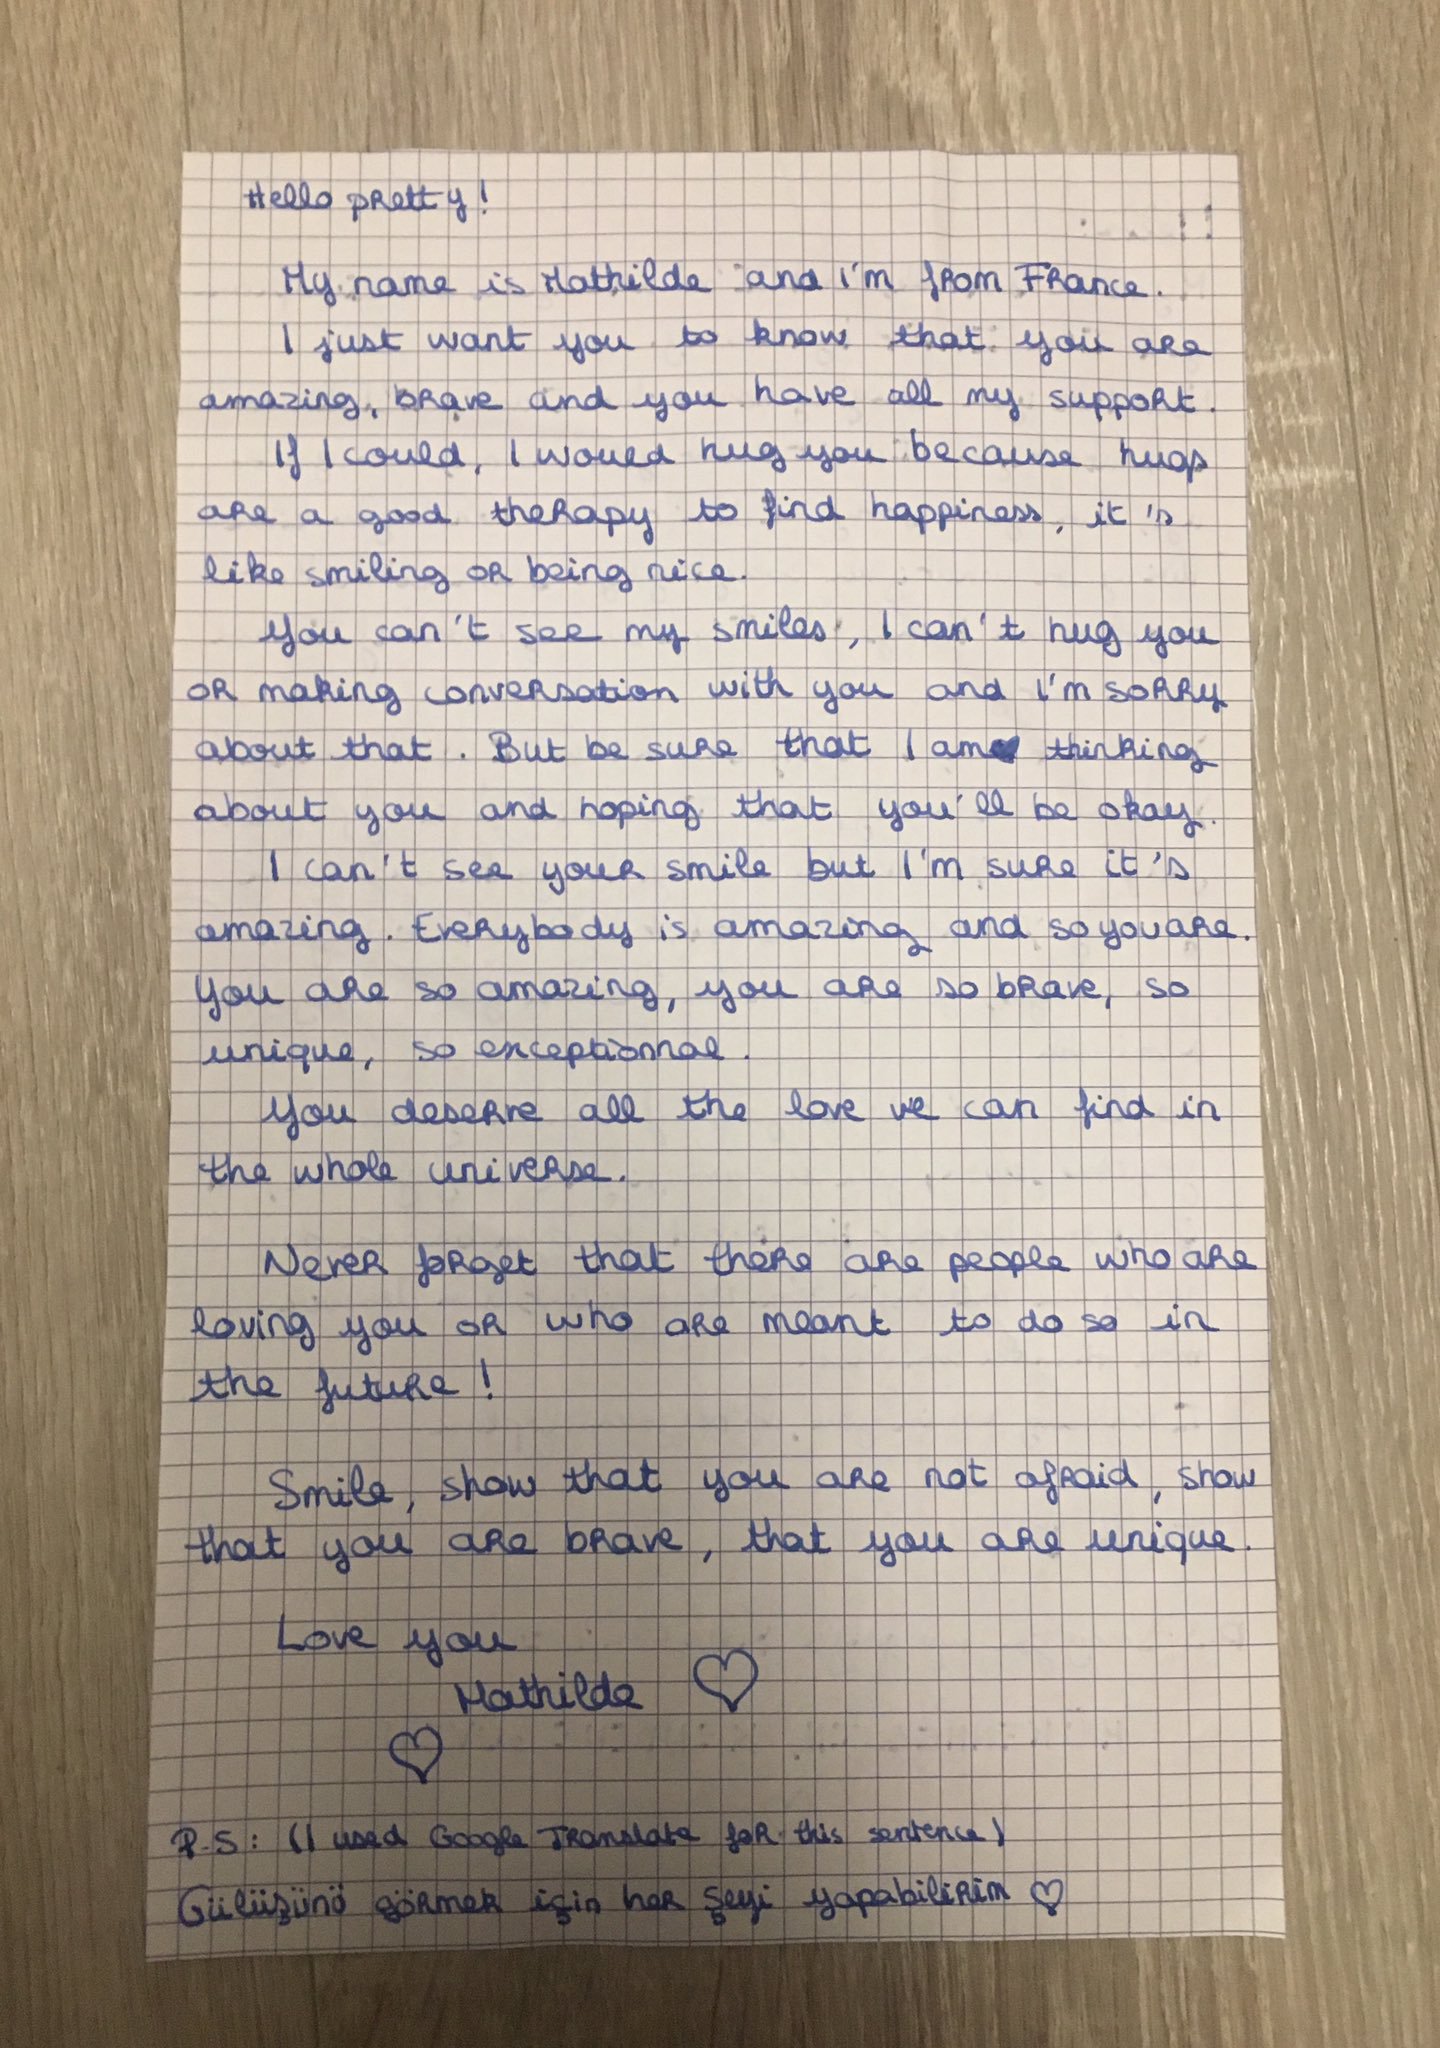 Hello pretty!
My name is Mathilde and I'm from France.
I just want you to know that you are
amazing, brave and you have all my support.
If I could, I would hug you because hugs
are a good therapy to find happiness, it's
like smiling or being nice.
You can't see my smiles, I can't hug you
or making conversation with you and I'm sorry
about that. But be sure that I am thinking
about you and hoping that you'll be okay.
I can't see your smile but I'm sure it's
amazing. Everybody is amazing and so you are.
You are so amazing, you are so brave, so
unique, so exceptionnal.
You deserve all the love we can find in
the whole universe.
Never forget that there are people who are
loving you or who are meant to do so in
the future!
Smile, show that you are not afraid, show
that you are brave, that you are unique.
Love you
Mathilde ♡
♡
P.S: (I used Google Translate for this sentence)
Gülüşünü görmek için her şeyi yapabilirim ♡